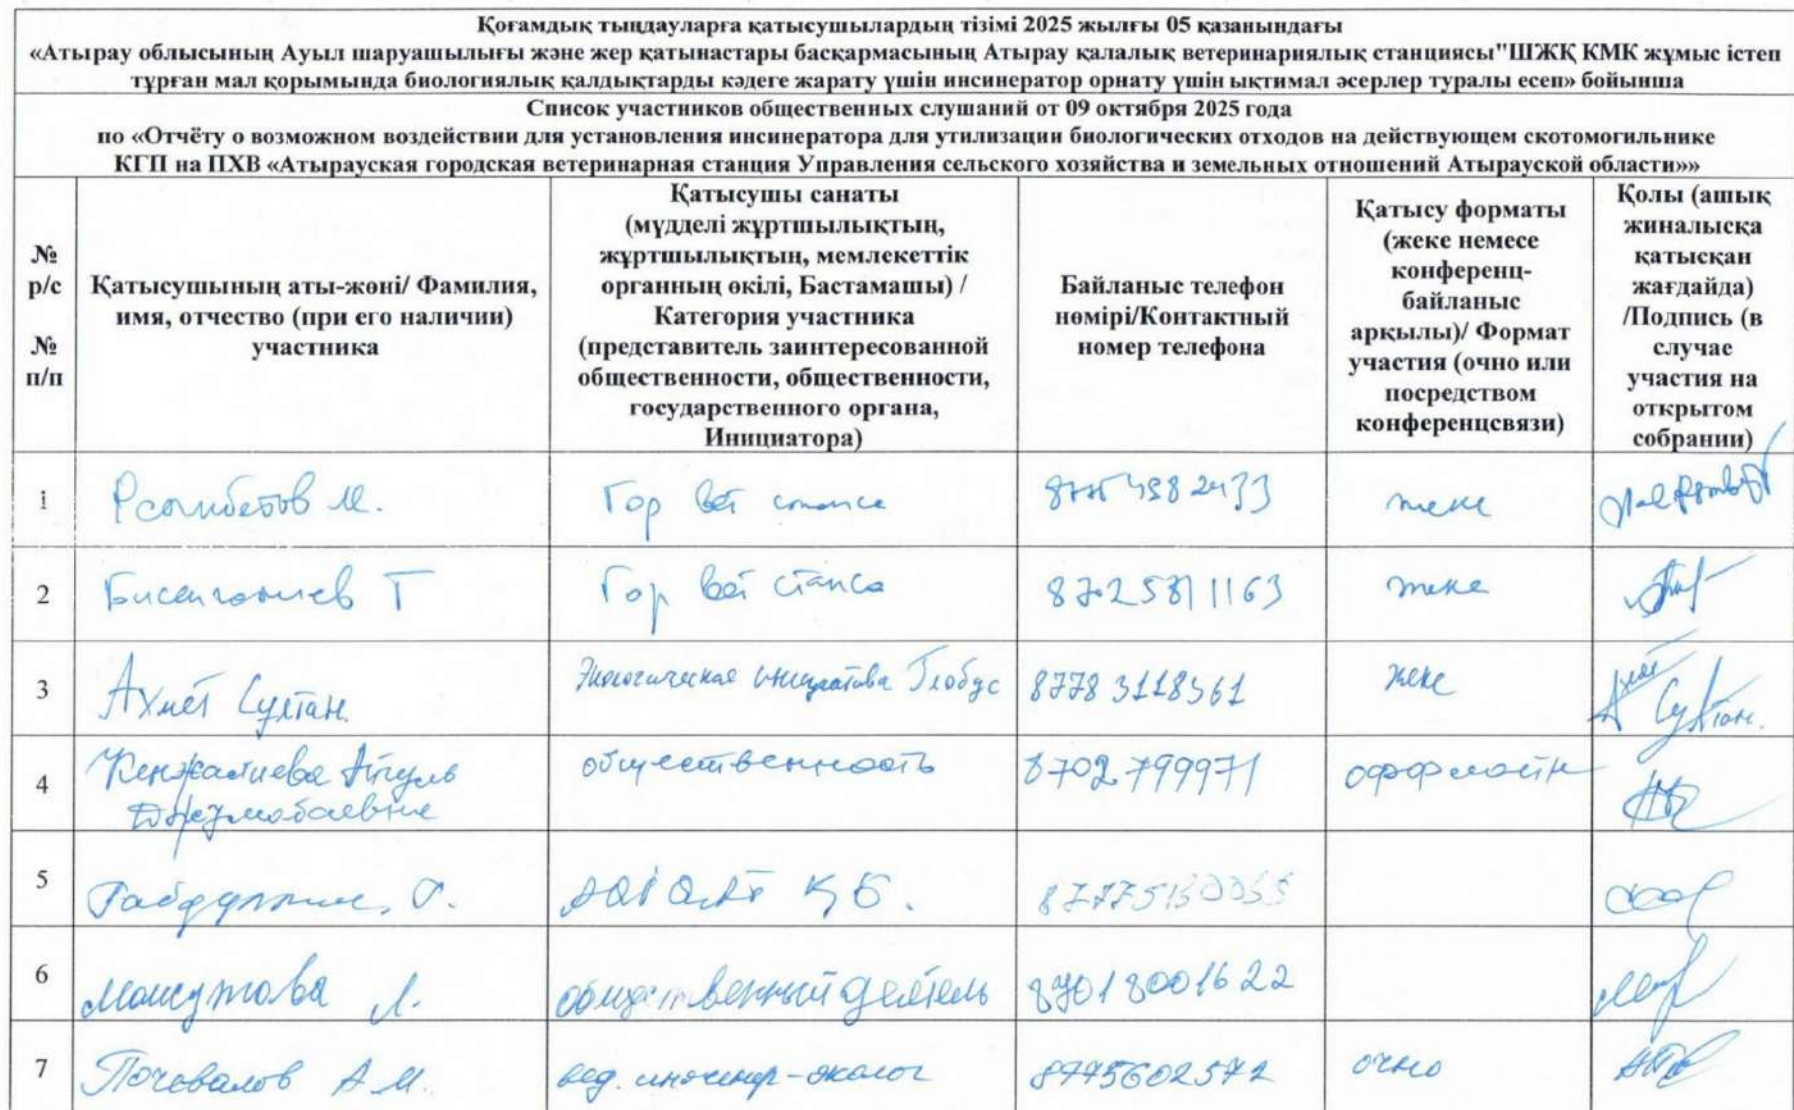 Қоғамдық тыңдауларға қатысушылардың тізімі 2025 жылғы 05 қазанындағы
«Атырау облысының Ауыл шаруашылығы және жер қатынастары басқармасының Атырау қалалық ветеринариялық станциясы"ШЖҚ КМК жұмыс істеп
тұрған мал қорымында биологиялық қалдықтарды кәдеге жарату үшін инсинератор орнату үшін ықтимал әсерлер туралы есеп» бойынша
Список участников общественных слушаний от 09 октября 2025 года
по «Отчёту о возможном воздействии для установления инсинератора для утилизации биологических отходов на действующем скотомогильнике
КГП на ПХВ «Атырауская городская ветеринарная станция Управления сельского хозяйства и земельных отношений Атырауской области»»
№
р/с
№
п/п
Қатысушының аты-жөні/ Фамилия,
имя, отчество (при его наличии)
участника
Қатысушы санаты
(мүдделі жұртшылықтың,
жұртшылықтың, мемлекеттік
органның өкілі, Бастамашы) /
Категория участника
(представитель заинтересованной
общественности, общественности,
государственного органа,
Инициатора)
Байланыс телефон
нөмірі/Контактный
номер телефона
Қатысу форматы
(жеке немесе
конференц-
байланыс
арқылы)/ Формат
участия (очно или
посредством
конференцсвязи)
Қолы (ашық
жиналысқа
қатысқан
жағдайда)
/Подпись (в
случае
участия на
открытом
собрании)
1 Гор вет жеке
2 Т Гор вет станса жеке
3 Ахмет Султан. Экологическая инициатива Глобус 8778 3118361 жеке Ахмет Султан.
4 Кенжалиева
общественность 8702 799971 оффлайн
5
6 Л. общественный деятель 87018001622
7 Почовалов А.М. вед. инженер-эколог 8775602572 очно